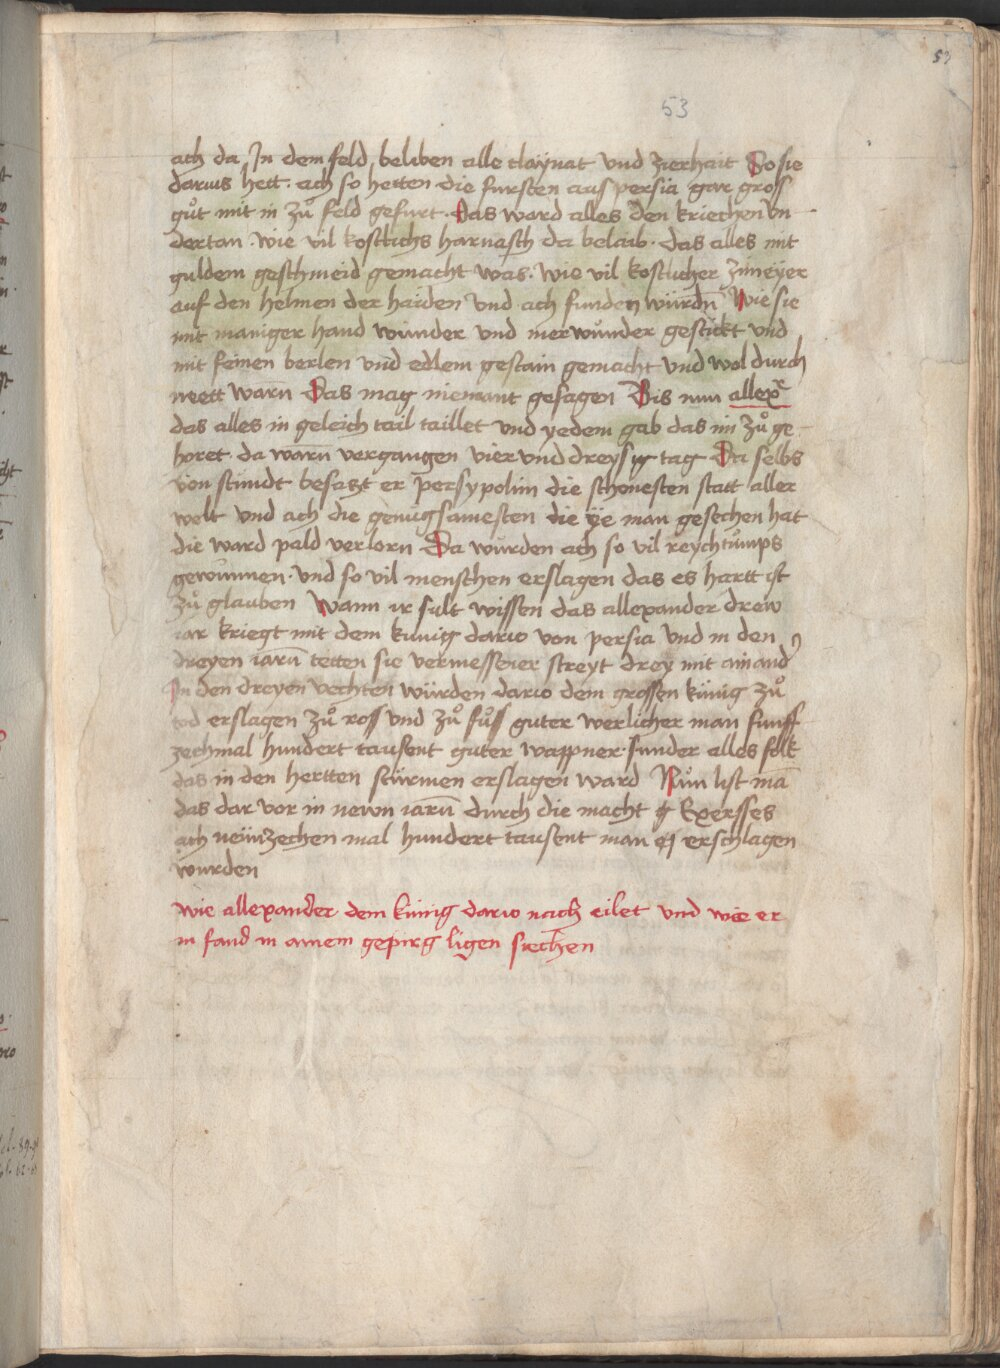 53
53
ach da In dem feld beliben alle claÿnat und zierhait So sie
darius hett. ach so hetten die fursten aus persia gar gross
gůt mit in zů feld gefurt. Das ward alles den kriechen un
dertan wie vil kostlichs harnasch da belaib. das alles mit
guldem geschmeid gemacht was. wie vil kostlicher zimeÿer
auf den helmen der haiden und ach funden würdn̄ Wie sie
mit maniger hand wunder und merwůnder gestickt und
mit feinen berlen und edlem gestain gemacht und wol durch
neett warn̄ Das mag niemant gesagen Bis nun allexr
das alles in geleich tail taillet und yedem gab das im zů ge
horet da warn̄ vergangen vier und dreysig tag Da selbs
von stundt besatzt er persypolim die schonesten statt aller
welt und ach die genugsamesten die ÿe man gesechen hat
die ward pald verlorn Da wurden ach so vil reychtůmps
gewunnen. und so vil menschen erslagen das es hartt ist
zů glauben Wann ir sult wissen das allexander drew
iar kriegt mit dem kunig dario von persia und in den
dreyen iarn̄ tetten sie vermessener streyt drey mit ainand
In den dreyen vechten würden dario dem grossen künig zů
tod erslagen zů ross und zů fůss guter werlicher man funff
zechmal hundert tausent guter wappner. sunder alles folk
das in den hertten sturmen erslagen ward Nůn list mā
das dar vor in newn iarn̄ durch die macht Exersses
ach neünzechen mal hundert tausent man erschlagen
wurden
wie allexander dem künig dario nach eilet und wie er
in fand in ainem gepirg ligen siechen